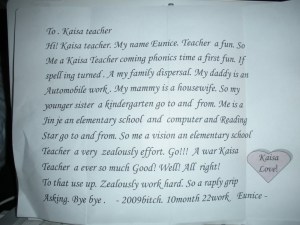 To . Kaisa teacher
Hi! Kaisa teacher. My name Eunice. Teacher a fun. So
Me a Kaisa Teacher coming phonics time a first fun. If
spell ing turned . A my family dispersal. My daddy is an
Automobile work . My mammy is a housewife. So my
younger sister a kindergarten go to and from. Me is a
Jin je an elementary school and computer and Reading
Star go to and from. So me a vision an elementary school
Teacher a very zealously effort. Go!!! A war Kaisa
Teacher a ever so much Good! Well! All right!
To that use up. Zealously work hard. So a raply grip
Asking. Bye bye . - 2009bitch. 10month 22work Eunice -
Kaisa
Love!